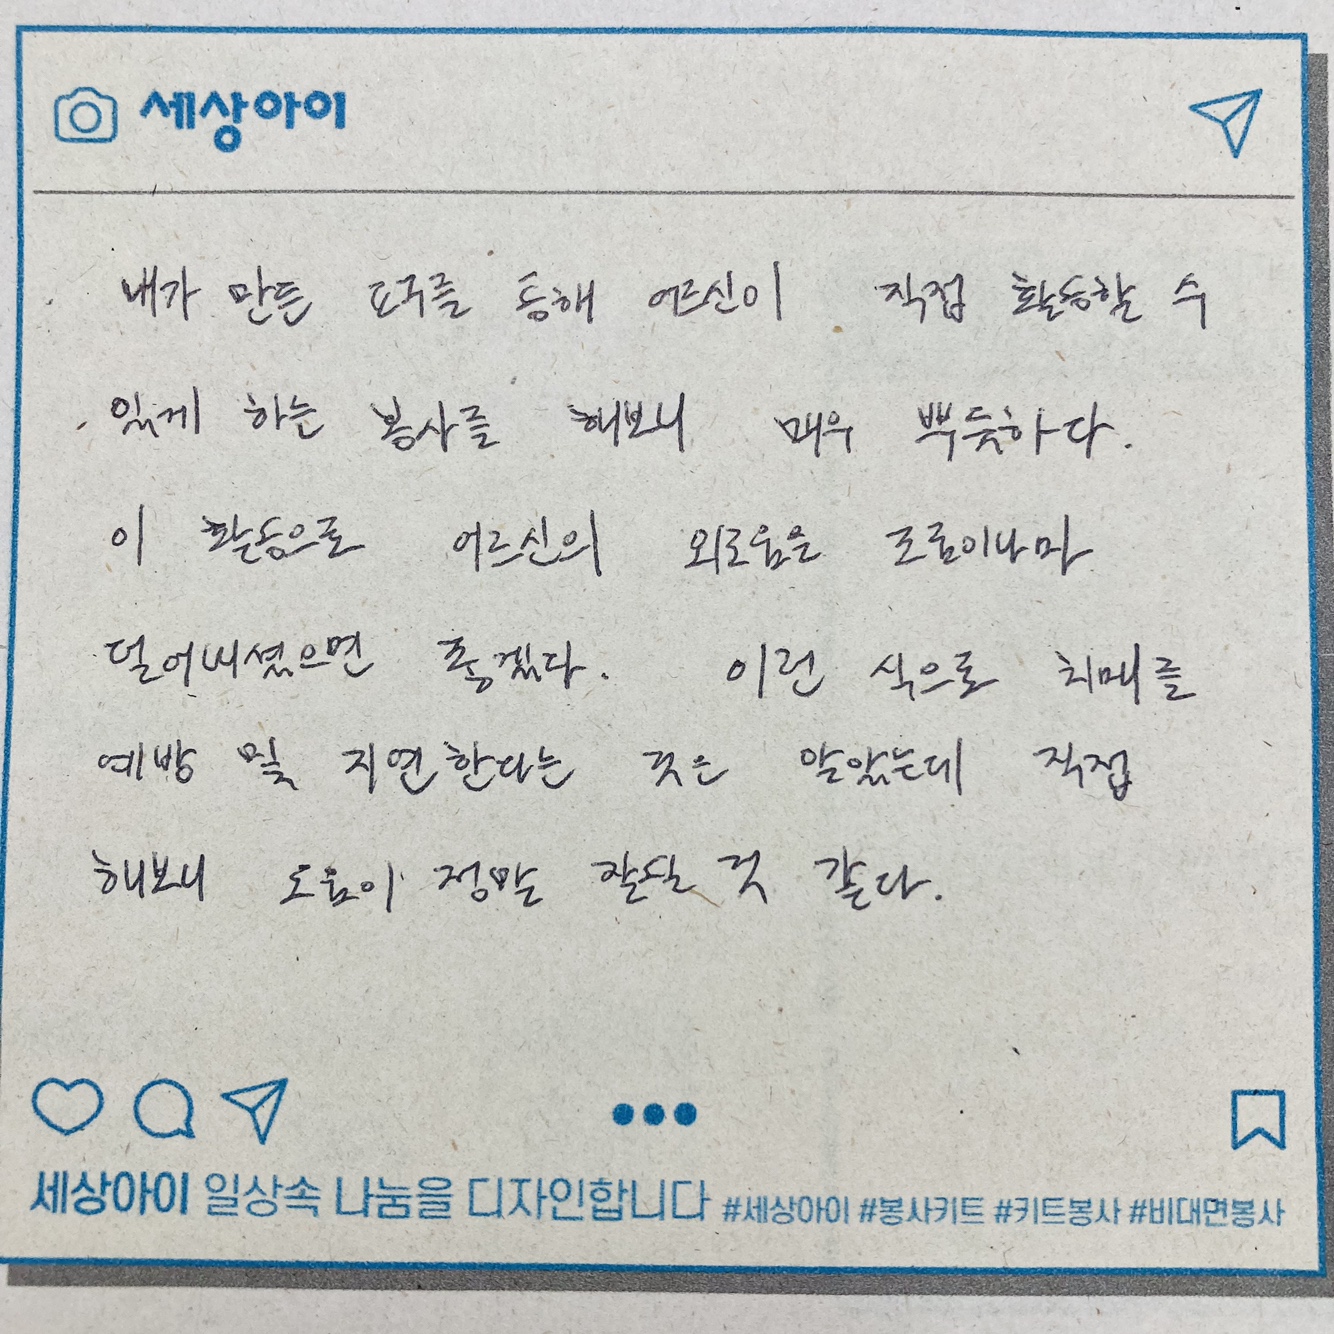 세상아이
내가 만든 도구를 통해 어르신이 직접 활동할 수
있게 하는 봉사를 해보니 매우 뿌듯하다.
이 활동으로 어르신의 외로움을 조금이나마
덜어내셨으면 좋겠다. 이런 식으로 치매를
예방 및 지연한다는 것은 알았는데 직접
해보니 도움이 정말 잘될 것 같다.
세상아이 일상속 나눔을 디자인합니다 #세상아이 #봉사키트 #키트봉사 #비대면봉사